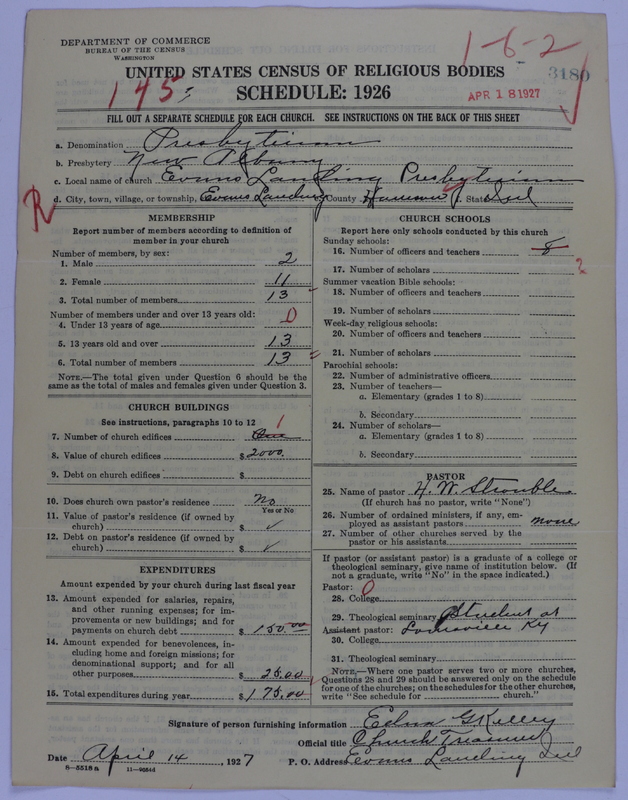 DEPARTMENT OF COMMERCE
BUREAU OF THE CENSUS
WASHINGTON
1-6-2
3180
UNITED STATES CENSUS OF RELIGIOUS BODIES
145
SCHEDULE: 1926
APR 18 1927
FILL OUT A SEPARATE SCHEDULE FOR EACH CHURCH. SEE INSTRUCTIONS ON THE BACK OF THIS SHEET
a. Denomination Presbyterian
b. Presbytery New Albany
c. Local name of church Evans Landing Presbyterian
d. City, town, village, or township, Evans Landing County Harrison State Ind
R
MEMBERSHIP
Report number of members according to definition of
member in your church
Number of members, by sex:
1. Male 2
2. Female 11
3. Total number of members 13
Number of members under and over 13 years old:
4. Under 13 years of age 0
5. 13 years old and over 13
6. Total number of members 13
NOTE.—The total given under Question 6 should be the
same as the total of males and females given under Question 3.
CHURCH BUILDINGS
See instructions, paragraphs 10 to 12
7. Number of church edifices One 1
8. Value of church edifices $ 2000.
9. Debt on church edifices $
10. Does church own pastor's residence No
Yes or No
11. Value of pastor's residence (if owned by
church) $ ✓
12. Debt on pastor's residence (if owned by
church) $ ✓
EXPENDITURES
Amount expended by your church during last fiscal year
13. Amount expended for salaries, repairs,
and other running expenses; for im-
provements or new buildings; and for
payments on church debt $ 150.00
14. Amount expended for benevolences, in-
cluding home and foreign missions; for
denominational support; and for all
other purposes $ 25.00
15. Total expenditures during year $ 175.00
CHURCH SCHOOLS
Report here only schools conducted by this church
Sunday schools:
16. Number of officers and teachers 8
17. Number of scholars
2
Summer vacation Bible schools:
18. Number of officers and teachers
19. Number of scholars
Week-day religious schools:
20. Number of officers and teachers
21. Number of scholars
Parochial schools:
22. Number of administrative officers
23. Number of teachers—
a. Elementary (grades 1 to 8)
b. Secondary
24. Number of scholars—
a. Elementary (grades 1 to 8)
b. Secondary
PASTOR
25. Name of pastor H. W. Strouble
(If church has no pastor, write "None")
26. Number of ordained ministers, if any, em-
ployed as assistant pastors none
27. Number of other churches served by the
pastor or his assistants
If pastor (or assistant pastor) is a graduate of a college or
theological seminary, give name of institution below. (If
not a graduate, write "No" in the space indicated.)
Pastor: 0
28. College
29. Theological seminary Student at
Assistant pastor: Louisville Ky
30. College
31. Theological seminary
NOTE.—Where one pastor serves two or more churches,
Questions 28 and 29 should be answered only on the schedule
for one of the churches; on the schedules for the other churches,
write "See schedule for church."
Signature of person furnishing information Edna G Kelley
Official title Church Treasurer
Date April 14, 1927 P. O. Address Evans Landing Ind
8—5518a 11—9884d